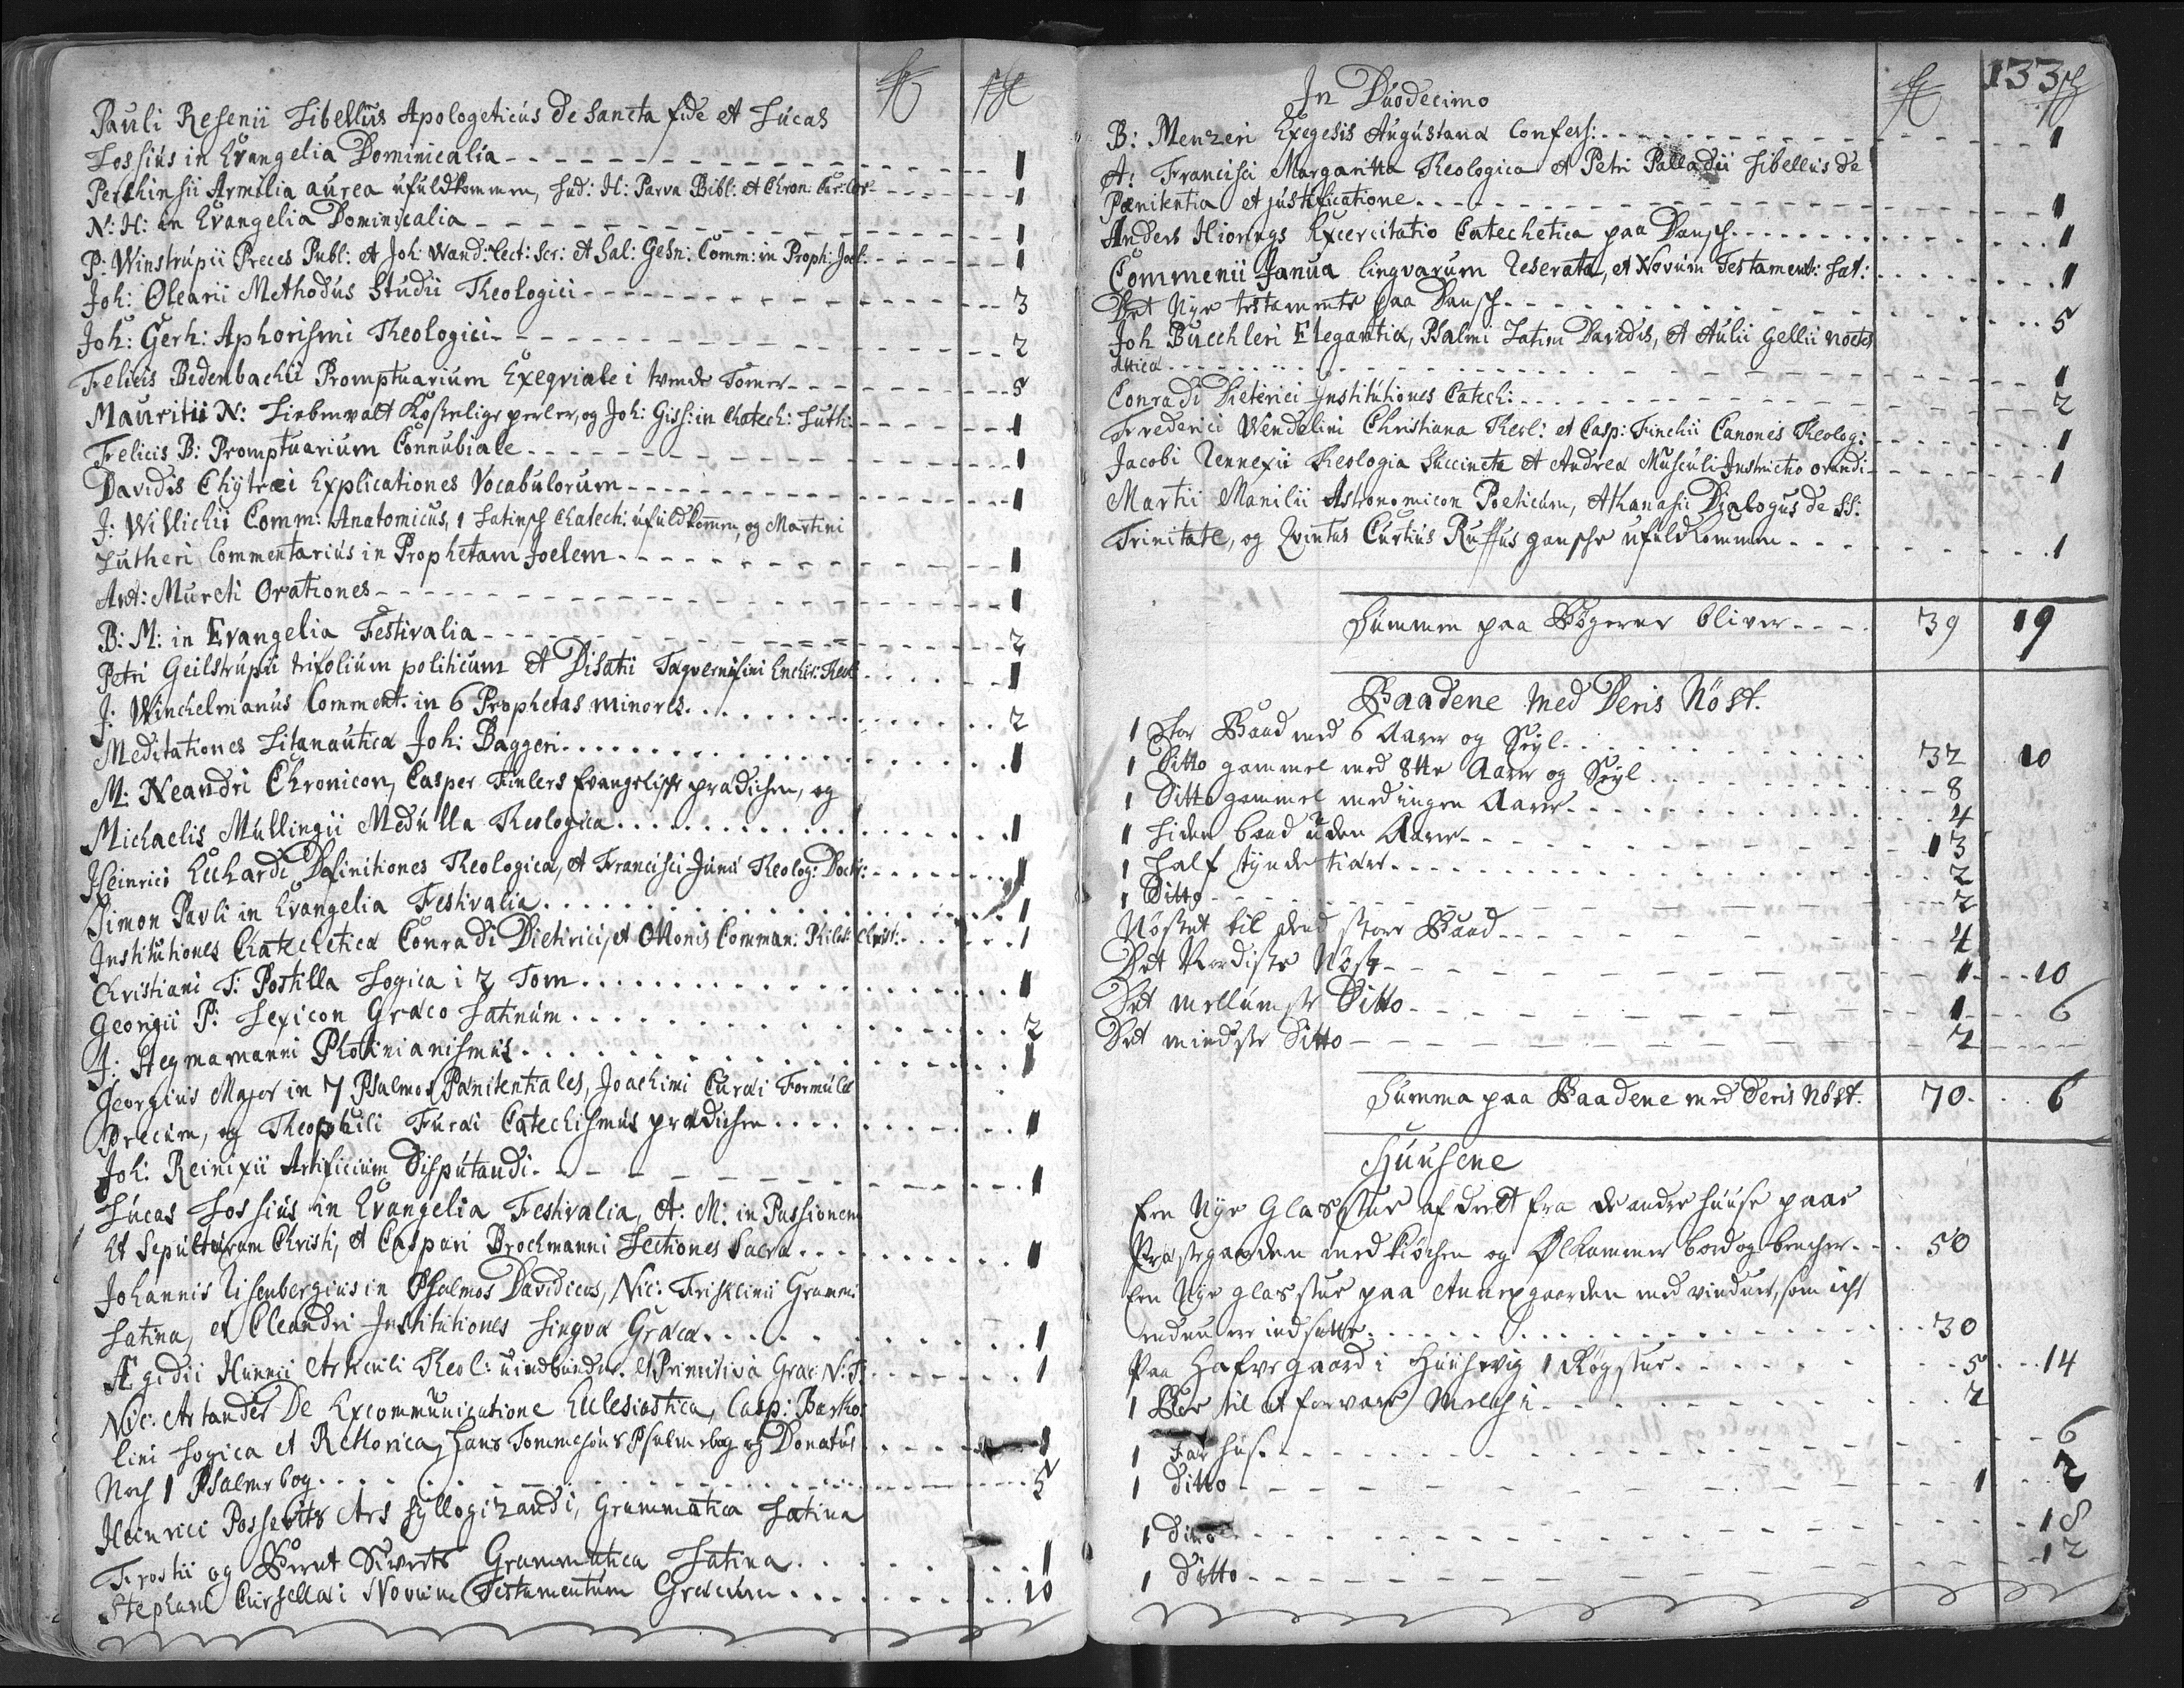 Pauli Resenii Libellus Apologeticus de Sancta fide et Lucas
Lossius in Evangelia Dominicalia 1
Perchinsii Armilia aurea ufuldkommen, Lud: H: Parva Bibl: et Chron: 1
N: H: in Evangelia Dominicalia 1
P: Winstrupii Preces Publ: et Joh: Wand: Lect: Scr: et Sal: Gesn: Comm: in Proph: Joel: 1
Joh: Olearii Methodus Studii Theologici 3
Joh: Gerh: Aphorismi Theologici 2
Felicis Bidenbachii Promptuarium Exeqviale i tvende Tomer 5
Mauritii N: Liebenvalt Kostelige perler, og Joh: Giss: in Chatech: Luth: 1
Felicis B: Promptuarium Connubiale 1
Davidis Chytræi Explicationes Vocabulorum 1
J: Willichii Comm: Anatomicus, 1 Latinsch Chatech: ufuldkommen, og Martini
Lutheri Commentarius in Prophetam Joelem 1
Ant: Mureti Orationes 1
B: M: in Evangelia Festivalia 2
Petri Geilstrupii trifolium politicum et Disatii 1
J: Winckelmanus Comment: in 6 Prophetas minores 2
Meditationes Litanautica Joh: Baggeri 1
M: Neandri Chronicon, Casper Finlers Evangeliske prædichen, og
Michaelis Mullingii Medulla Theologica 1
Heinrici Echardi Definitiones Theologica, et Francisci Junii Theolog: Doctr: 1
Simon Pavli in Evangelia Festivalia 1
Institutiones Chatechetica Conradi Dietirici, et Ottonis Comman: Philos: Christ: 1
Christiani T: Postilla Logica i 2 Tom 1
Georgii P: Lexicon Græco Latinum 2
J: Stegmamanni Photinianismus 1
Georgius Major in 7 Psalmos Pænitentiales, Joachimi Curæi Formulæ
Precum, og Theophili Furæi Catechismus prædichen 1
Joh: Reinixii Artificium Disputandi 1
Lucas Lossius in Evangelia Festivalia, A: M: in Passionem
Et Sepulturam Christi, et Caspari Brochmanni Lectiones Sacra 1
Johannis Risenbergius in Psalmos Davidicos, Nic: Frisklinii Grammi
Latina, et Cleandri Institutiones Lingvæ Græcæ 1
Ægidii Hunnii Articuli Theol: uindbunden. et Primitiva Græc: N: T: 1
Nic: Artander De Excommunicatione Ecclesiastica, Casp: Bartho:
lini Logica et Rettorica, Hans Tommesøns Psalmebog og Donatus 1
Noch 1 Psalmebog 5
Heinrici Possevits Ars syllogizandi, Grammatica Latina
Frostii og Bernt Siverts Grammatica Latina 1
Stephani Curcellæi Novum Testamentum Græcum 10
133
In Duodecimo
B: Menzeri Exegesis Augustanæ Confess: 1
A: Francisci Margaritta Theologica et Petri Palladii Libellus de
Pænitentia et justificatione 1
Anders Hiorings Excercitatio Catechetica paa Dansch 1
Commenii Janua lingvarum reserata, et Novum Testament: Lat: 1
Det Nye testamente paa Dansch 5
Joh Buechleri Elegantia, Psalmi Latini Davidis, et Aulii Gellii noctes
Attica 1
Conradi Dieterici Institutiones Catech: 2
Frederici Wendelini Christiana Theol: et Casp: Finchii Canones Theolog: 1
Jacobi Rennexii Theologia Succincta et Andreæ Musculi Instructio orandi 1
Martii Manilii Astronomicon Poeticum, Athanasii Dialogus de SS:
Trinitate, og Qvintus Curtius Ruffus gansche ufuldkommen 1
Summen paa Bøgerne bliver 39 19
Baadene med Deris Nøst.
1 Stor Baad med 6 Aarer og Seyl 32 10
1 Ditto gammel med 8tte Aarer og Seyl 8
1 Ditto gammel med ingen Aarer 4
1 Liden baad uden Aarer 13
1 Half tynde tiære 2
1 Ditto 2
Nøstet til dend store Baad 4
Det Nordiste Nøst 1 10
Det mellumste Ditto 1 6
Det mindste Ditto 2
Summa paa Baadene med Deris Nøst. 70 6
Huusene
Een Nye Glasstue afdeelt fra de andre huuse paa
Præstegaarden med kiøchen og Ølkammer bord og bencher 50
Een Nye glasstue paa Annexgaarden med vinduer, som icke
endnu ere indsatte 30
Paa Hafregaard i Huusevig 1 Røgstue 5 14
1 Boe til at forvare Melch i 2
1 Faarhus 6
1 ditto 1 2
1 ditto 18
1 ditto 12